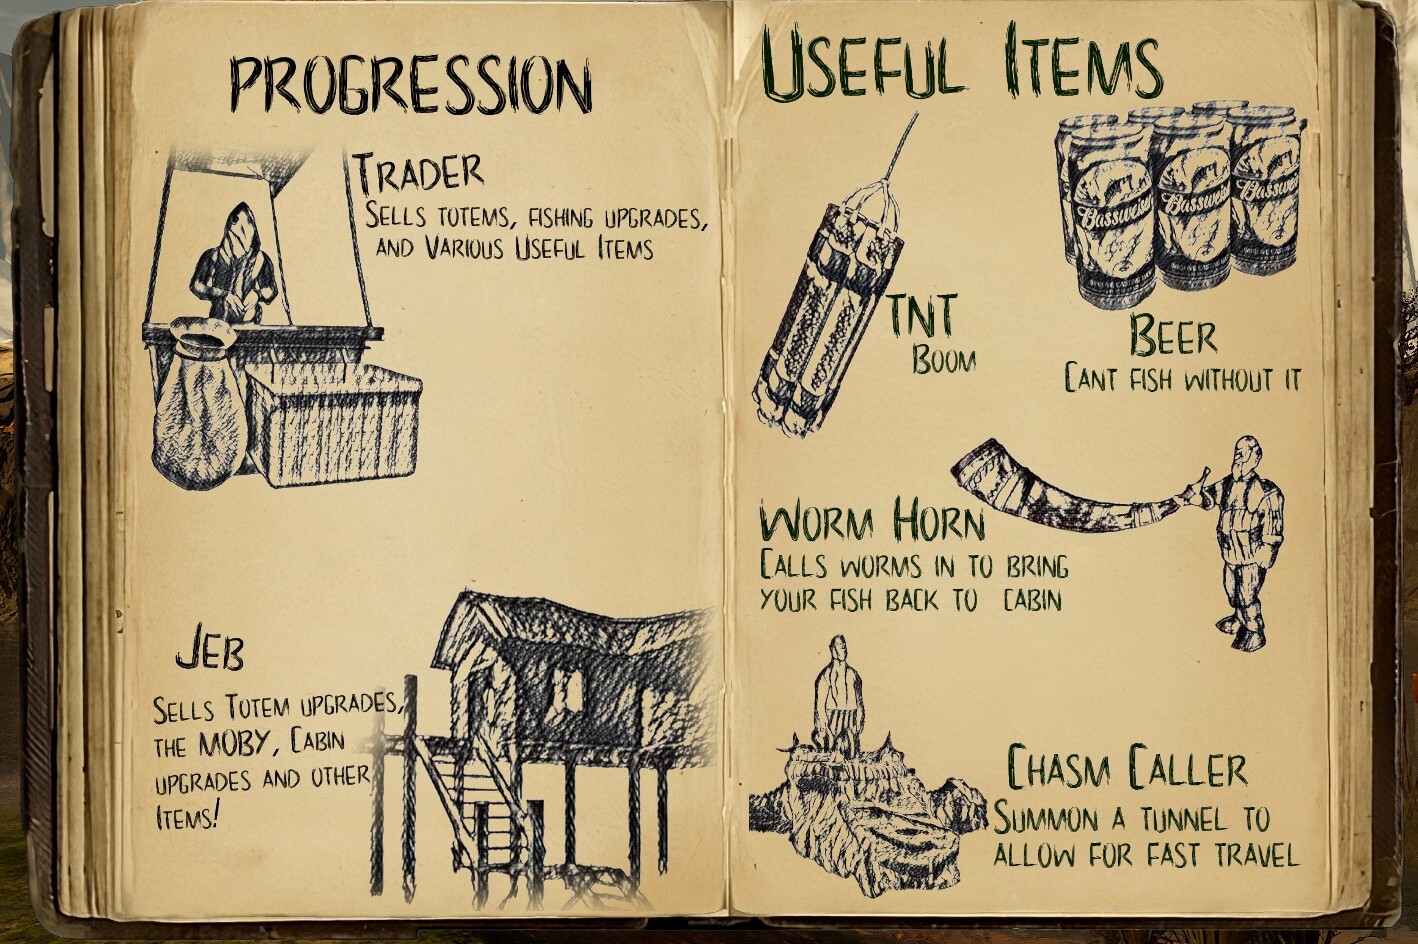 PROGRESSION
TRADER
SELLS TOTEMS, FISHING UPGRADES,
AND VARIOUS USEFUL ITEMS
JEB
SELLS TOTEM UPGRADES,
THE MOBY, CABIN
UPGRADES AND OTHER
ITEMS!
USEFUL ITEMS
TNT
BOOM
BEER
CANT FISH WITHOUT IT
WORM HORN
CALLS WORMS IN TO BRING
YOUR FISH BACK TO CABIN
CHASM CALLER
SUMMON A TUNNEL TO
ALLOW FOR FAST TRAVEL